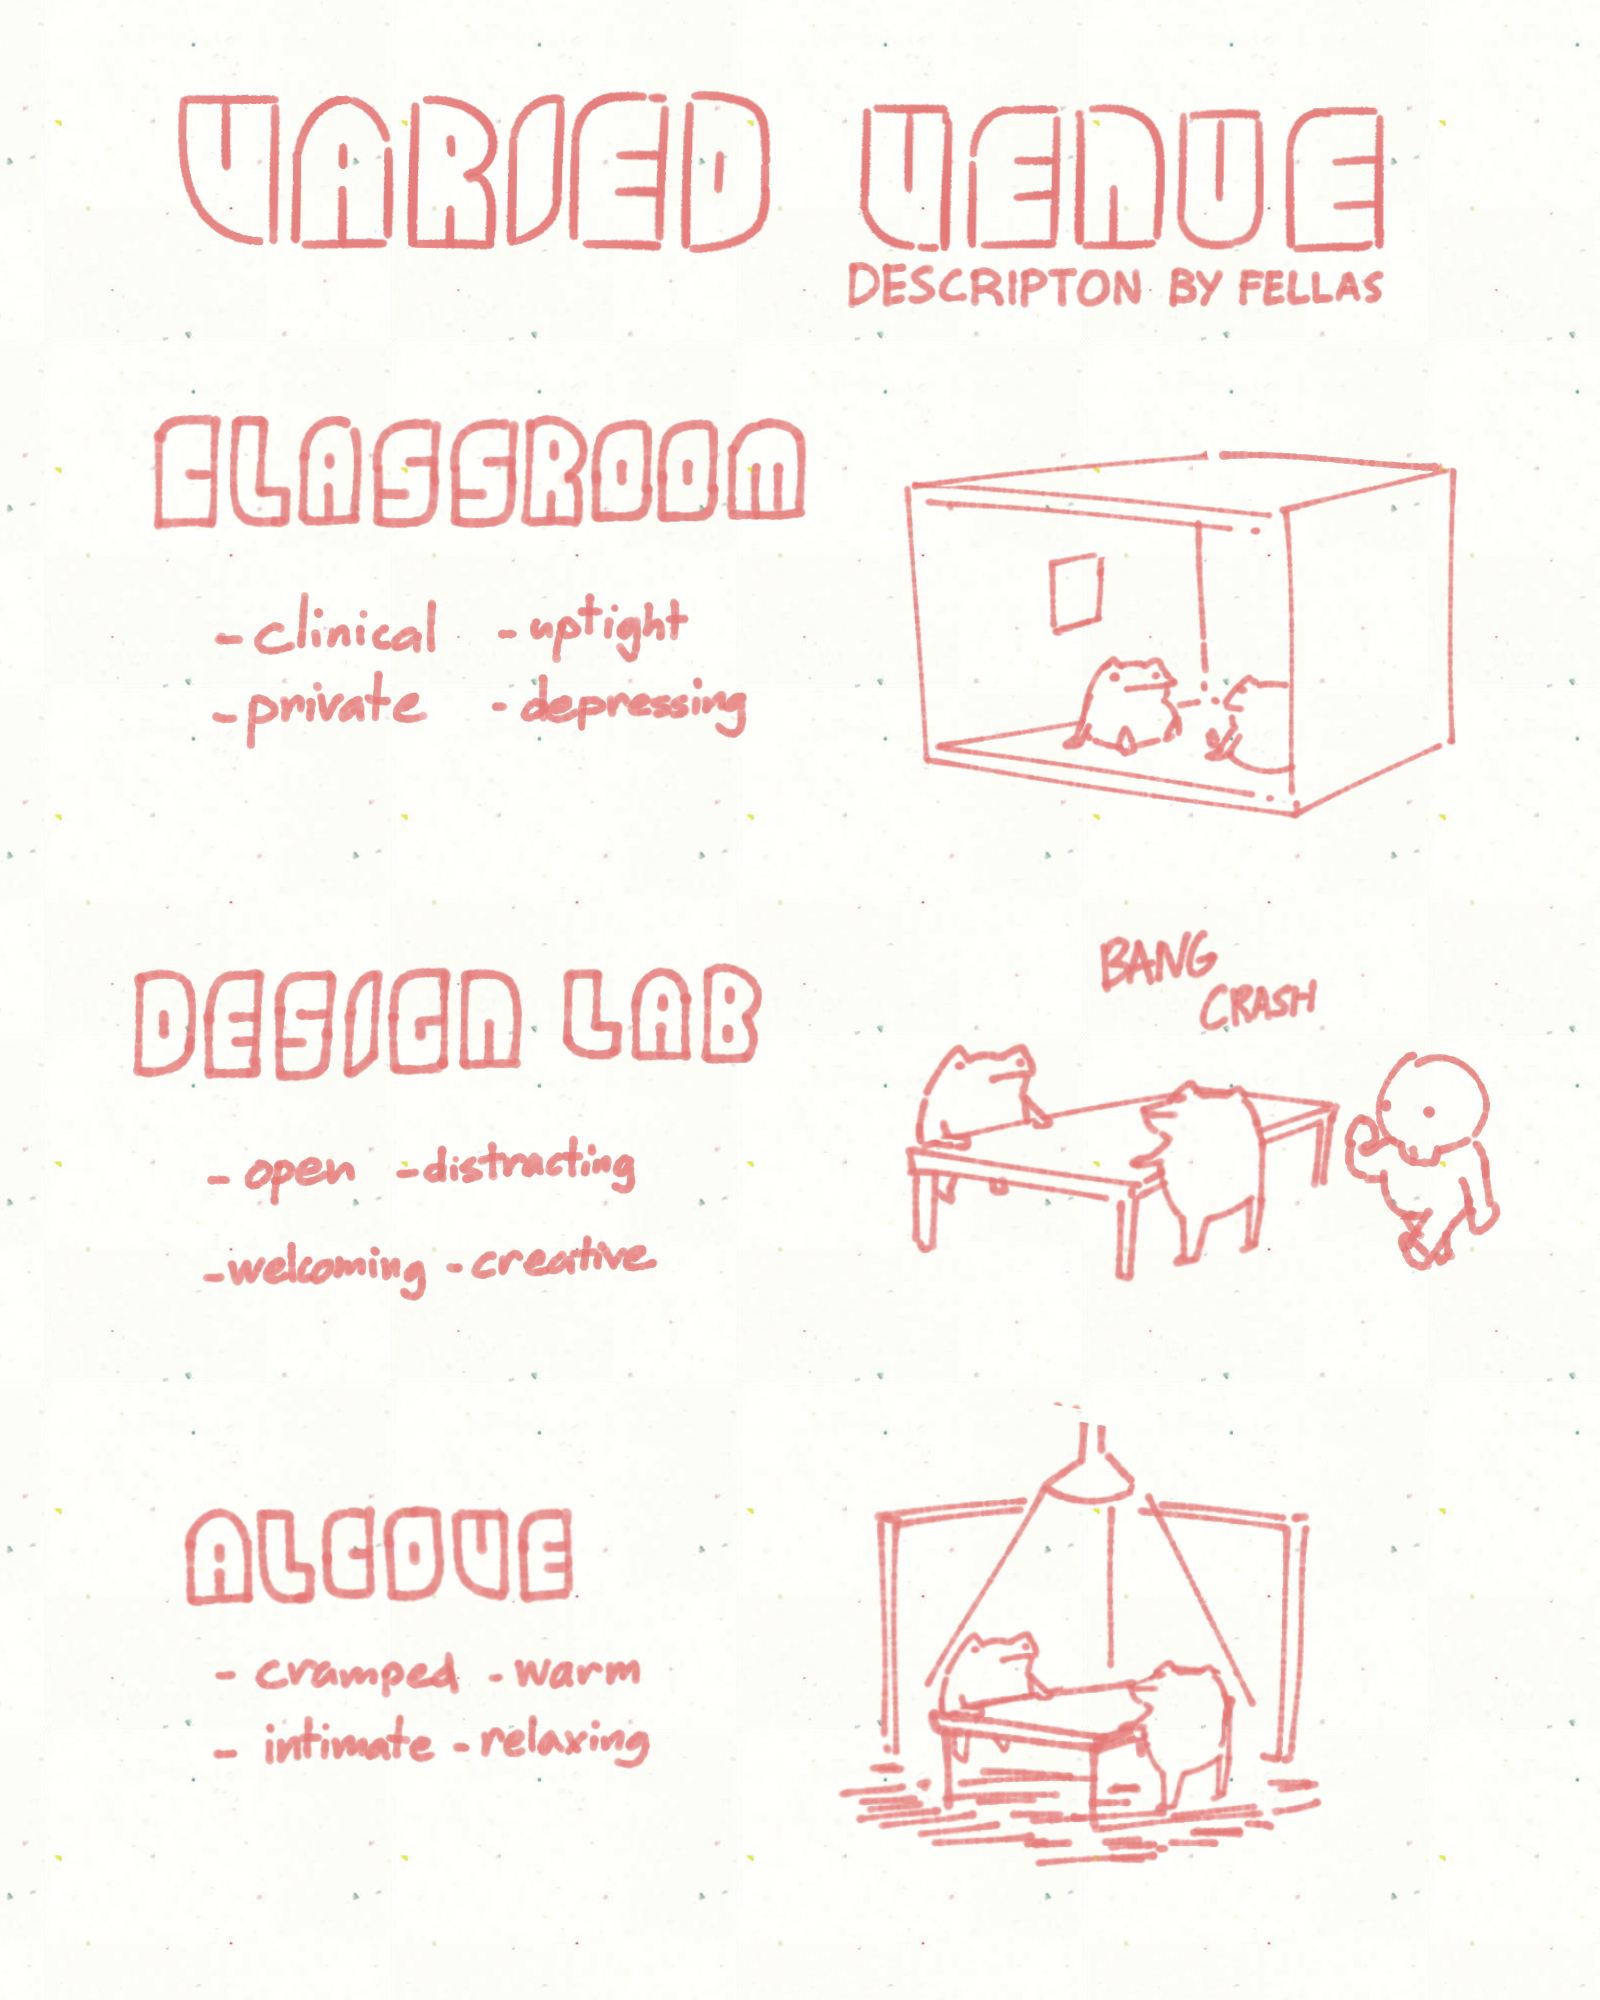 VARIED VENUE
DESCRIPTON BY FELLAS
CLASSROOM
- clinical - uptight
- private - depressing
DESIGN LAB
BANG
CRASH
- open - distracting
- welcoming - creative
ALCOVE
- cramped - warm
- intimate - relaxing